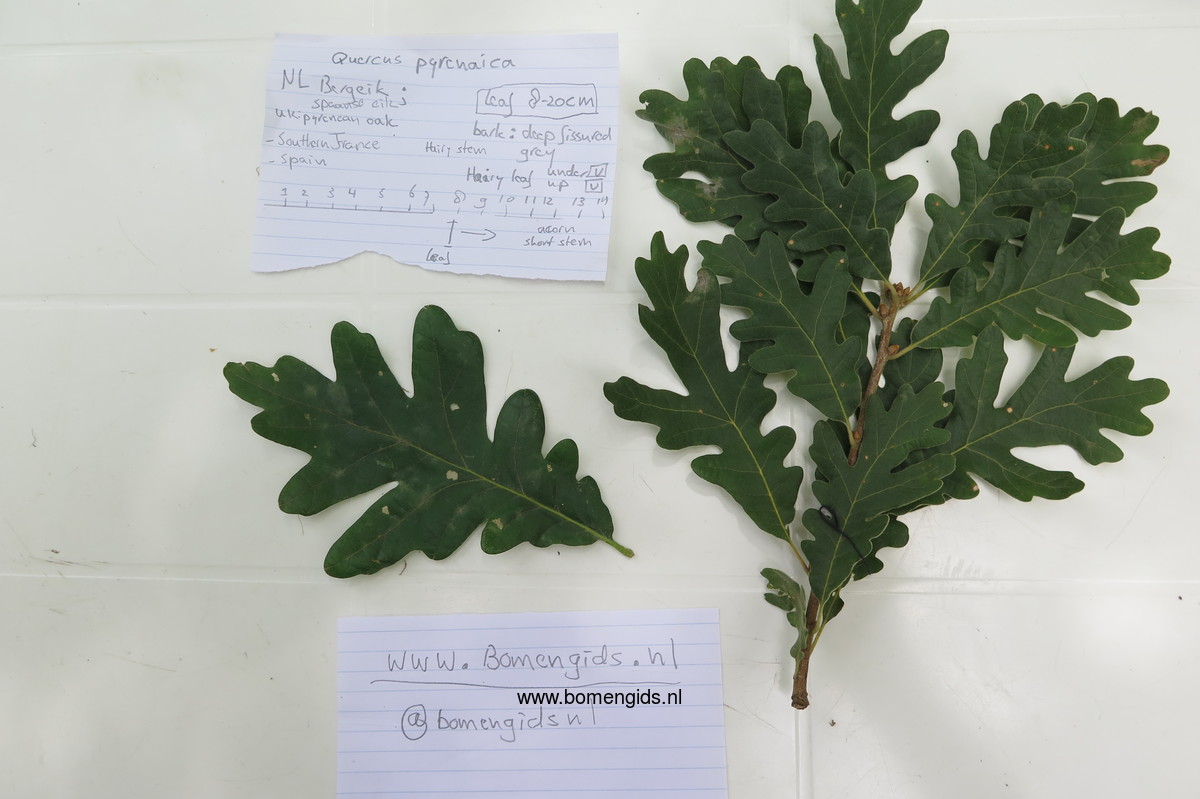 Quercus pyrenaica
NL Bergeik:
spaanse eik
UK pyrenean oak
- Southern France
- Spain
leaf 8-20cm
bark: deep fissured
grey
Hairy stem
Hairy leaf under V
up V
1 2 3 4 5 6 7 8 9 10 11 12 13 14
leaf
acorn
short stem
www.Bomengids.nl
www.bomengids.nl
@bomengidsnl